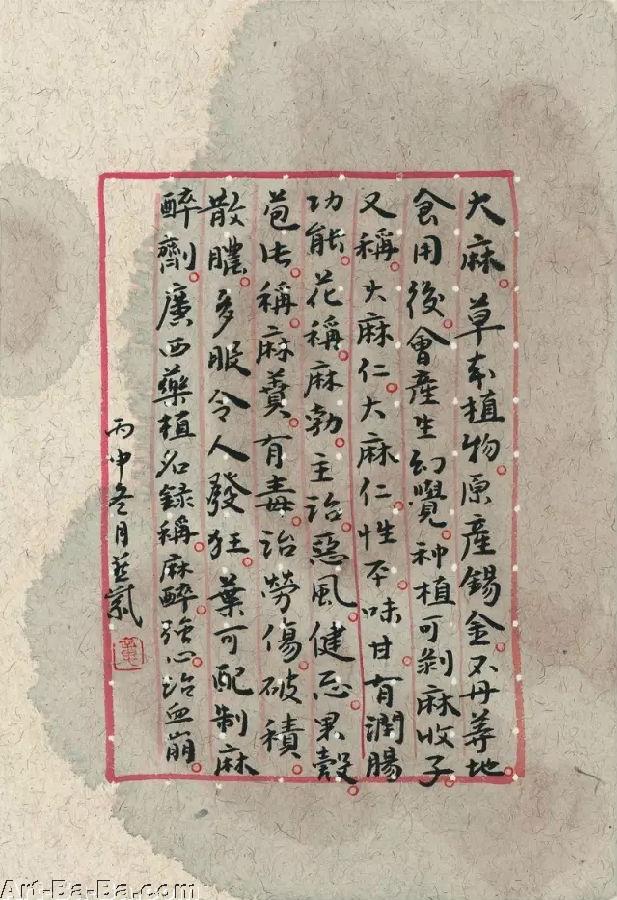 大麻草本植物。原產錫金不丹等地。
食用後。會產生幻覺。种植可剥麻收子。
又稱。大麻仁。大麻仁性平味甘。有潤腸
功能。花稱麻勃。主治惡風。健忘。果殼。
苞片稱。麻蕡。有毒。治勞傷。破積。
散膿。多服令人發狂。葉可配制麻
醉劑。廣西藥植名錄稱。麻醉。強心。治血崩。
丙申冬月
Art-Ba-Ba.com